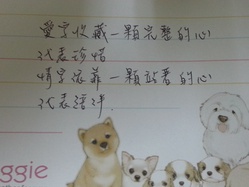 愛字收藏一顆完整的心
代表珍惜
情字依靠一顆站著的心
代表陪伴
ggie